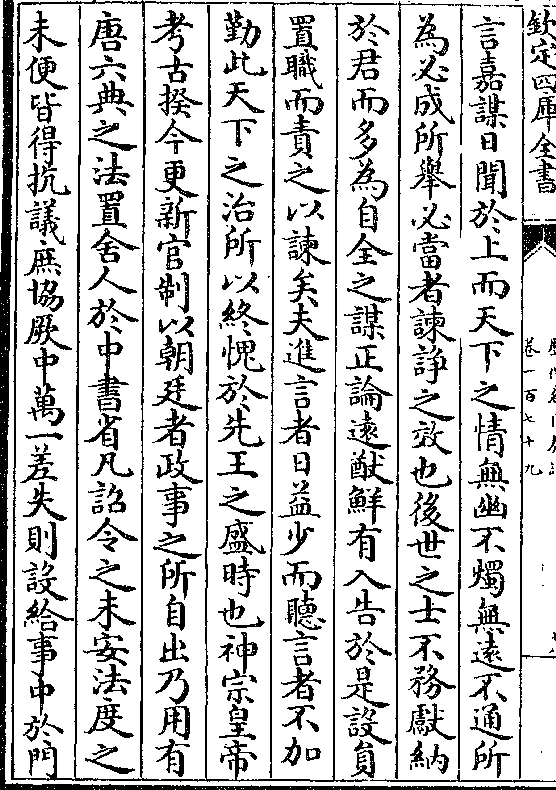 欽定四庫全書
卷一百七十九
言嘉謀日聞於上而天下之情無幽不燭無遠不通所
為必成所舉必當者諫諍之效也後世之士不務獻納
於君而多為自全之謀正論遠猷鮮有入告於是設員
置職而責之以諫矣夫進言者日益少而聽言者不加
勤此天下之治所以終愧於先王之盛時也神宗皇帝
考古揆今更新官制以朝廷者政事之所自出乃用有
唐六典之法置舍人於中書省凡詔令之未安法度之
未便皆得抗議庶協厥中萬一差失則設給事中於門